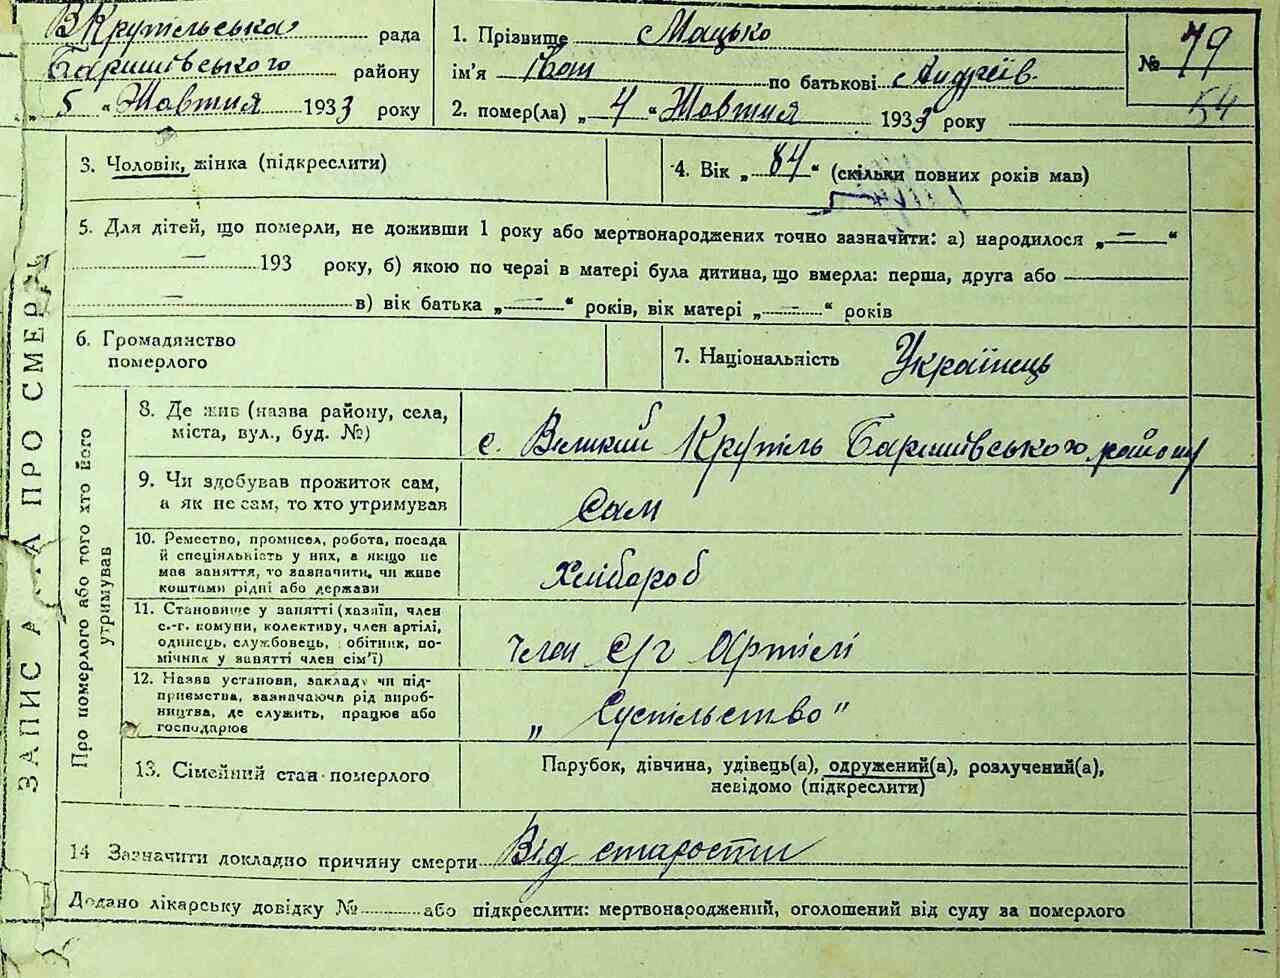 В Крутільська рада
Баришівського району
„ 5 “ Жовтня 1933 року
1. Прізвище Мацько
ім'я Іван по батькові Андріїв.
2. помер(ла) „ 4 “ Жовтня 1933 року
№ 79
54
ЗАПИС АКТА ПРО СМЕРТЬ
3. Чоловік, жінка (підкреслити)
4. Вік „ 84 “ (скільки повних років мав)
5. Для дітей, що померли, не доживши 1 року або мертвонароджених точно зазначити: а) народилося „ — “
— 193 року, б) якою по черзі в матері була дитина, що вмерла: перша, друга або
— в) вік батька „ — “ років, вік матері „ — “ років
6. Громадянство
померлого
7. Національність Українець
Про померлого або того хто його
утримував
8. Де жив (назва району, села,
міста, вул., буд. №)
с. Великий Крутіль Баришівського району
9. Чи здобував прожиток сам,
а як не сам, то хто утримував
Сам
10. Ремество, промисел, робота, посада
й спеціяльність у них, а якщо не
мав заняття, то зазначити, чи живе
коштами рідні або держави
Хлібороб
11. Становище у занятті (хазяїн, член
с.-г. комуни, колективу, член артілі,
одинець, службовець, обітник, по-
мічник у занятті член сім'ї)
Член с/г Артілі
12. Назва установи, закладу чи під-
приємства, зазначаючи рід вироб-
ництва, де служить, працює або
господарює
„ Суспільство "
13. Сімейний стан померлого
Парубок, дівчина, удівець(а), одружений(а), розлучений(а),
невідомо (підкреслити)
14 Зазначити докладно причину смерти Від старости
Додано лікарську довідку № або підкреслити: мертвонароджений, оголошений від суду за померлого